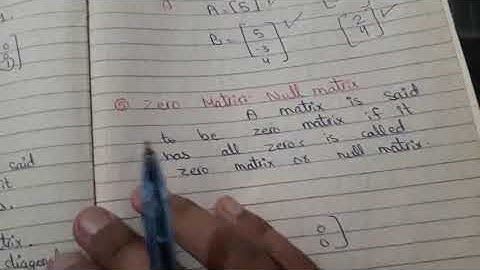 A = [5]
B = [ 5 3 4 ]
[ 2 4 ]
⑤ Zero Matrix Null matrix
A matrix is said
to be zero matrix if it
has all zeros is called
zero matrix or null matrix.
0
0
said
it
trix.
diagon